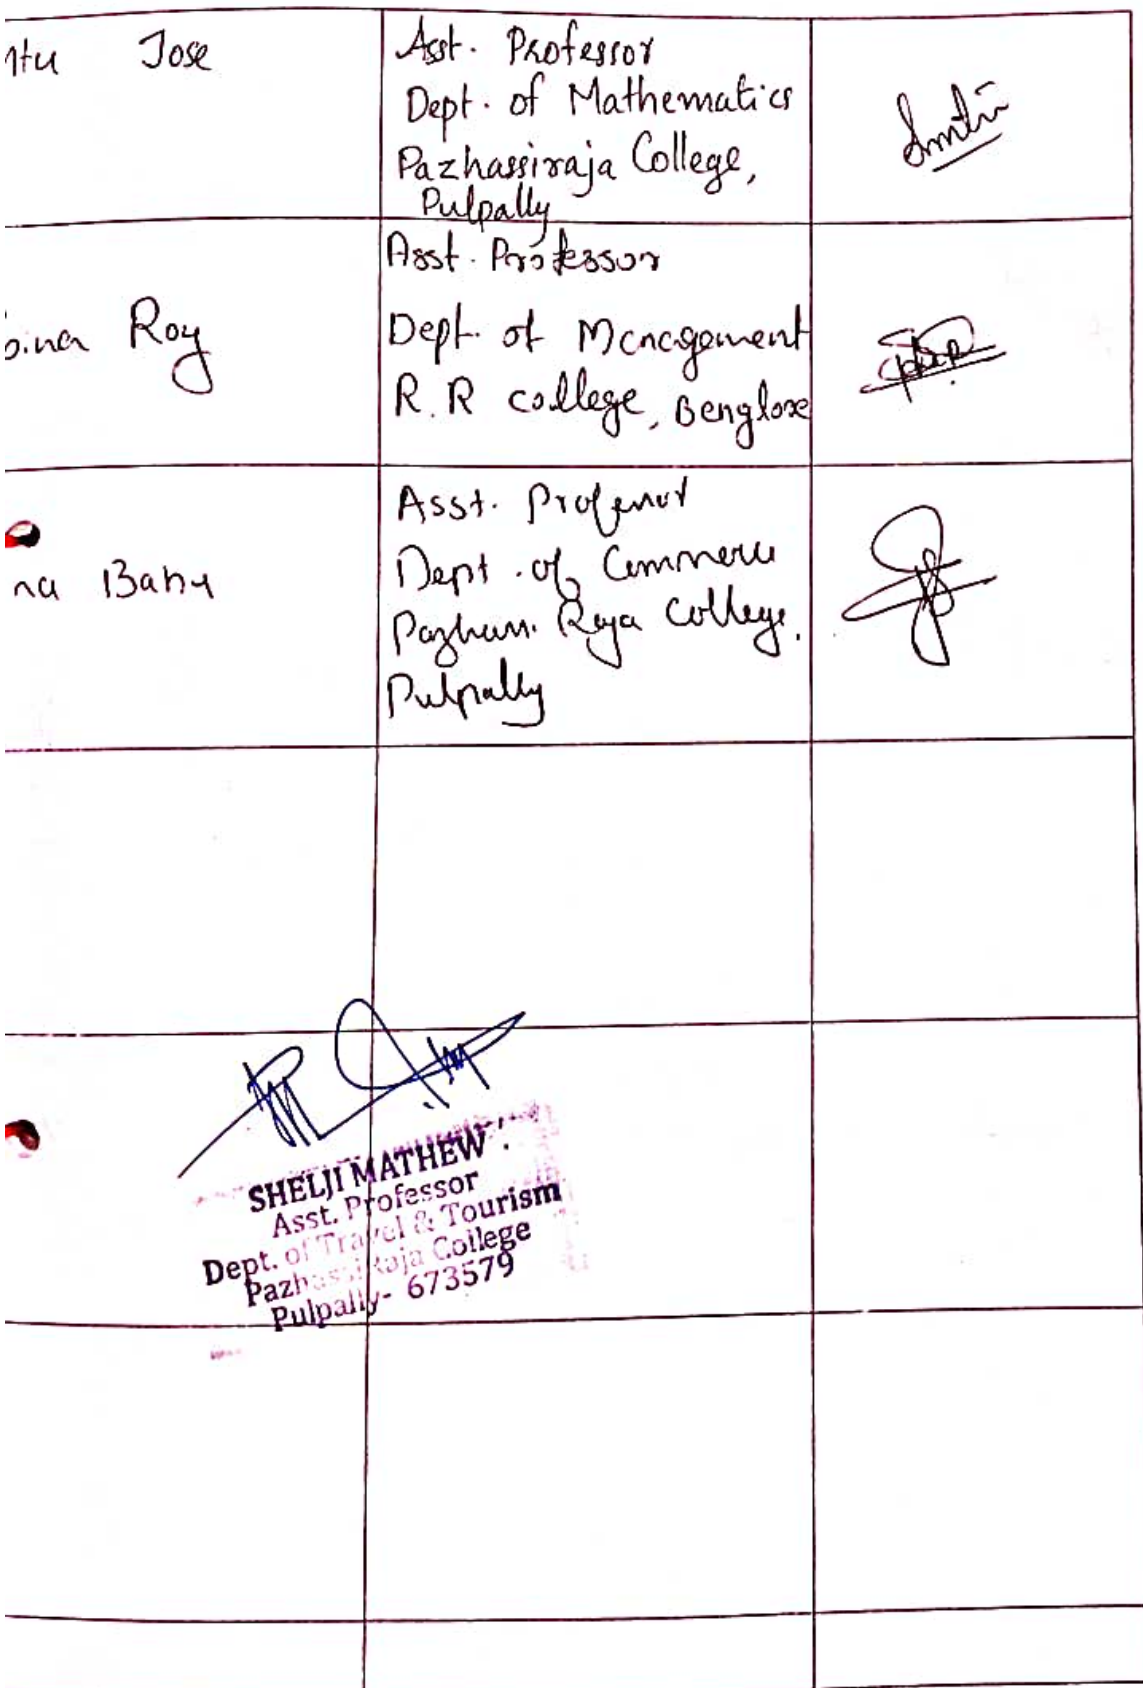 Jose
Asst. Professor
Dept. of Mathematics
Pazhassiraja College,
Pulpally
Roy
Asst. Professor
Dept. of Management
R.R college, Benglore
Baby
Asst. Professor
Dept. of Commerce
Raja College,
Pulpally
SHELJI MATHEW
Asst. Professor
Dept. of Travel & Tourism
Pazhassi Raja College
Pulpally- 673579